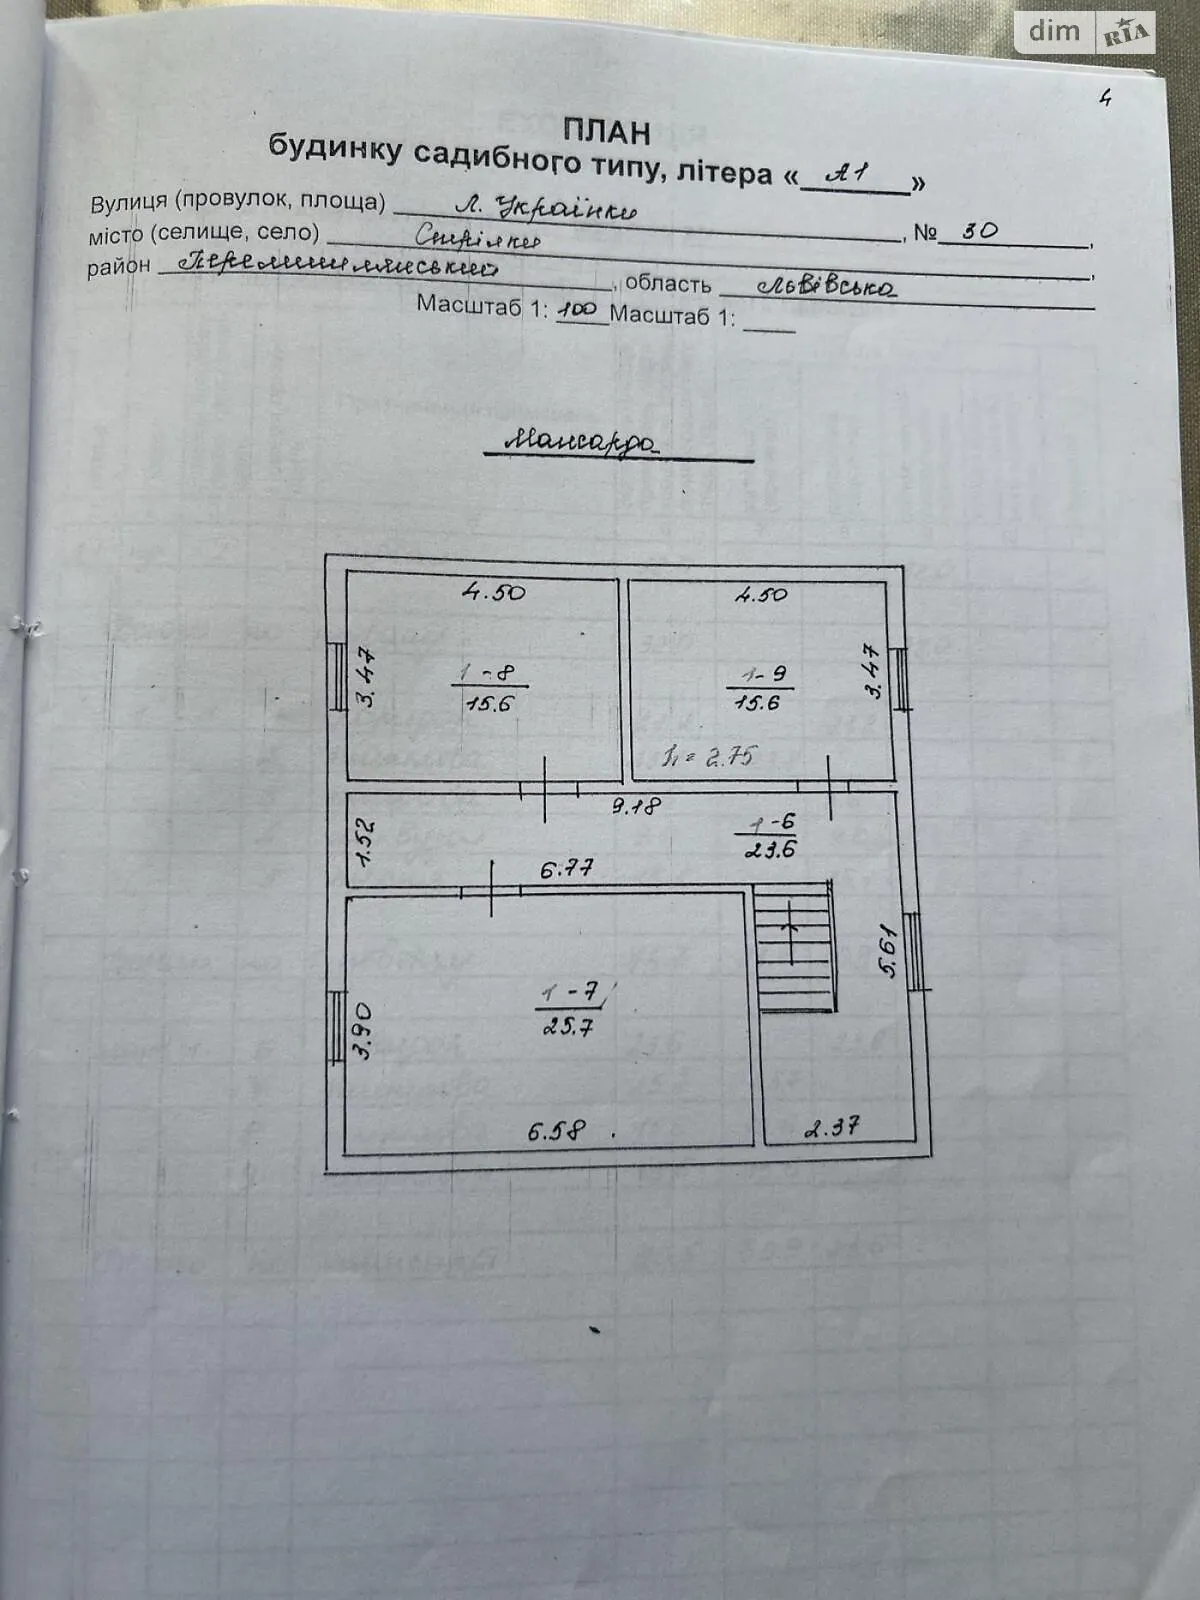 dim RIA
4
ПЛАН
будинку садибного типу, літера « А1 »
Вулиця (провулок, площа) Л. Українки, № 30,
місто (селище, село) Стрілки,
район Перемишлянський, область Львівська
Масштаб 1: 100 Масштаб 1:
Мансарда
4.50
4.50
3.47
1-8
15.6
1-9
15.6
3.47
h = 2.75
9.18
1.52
1-6
23.6
6.77
5.61
3.90
1-7
25.7
6.58
2.37